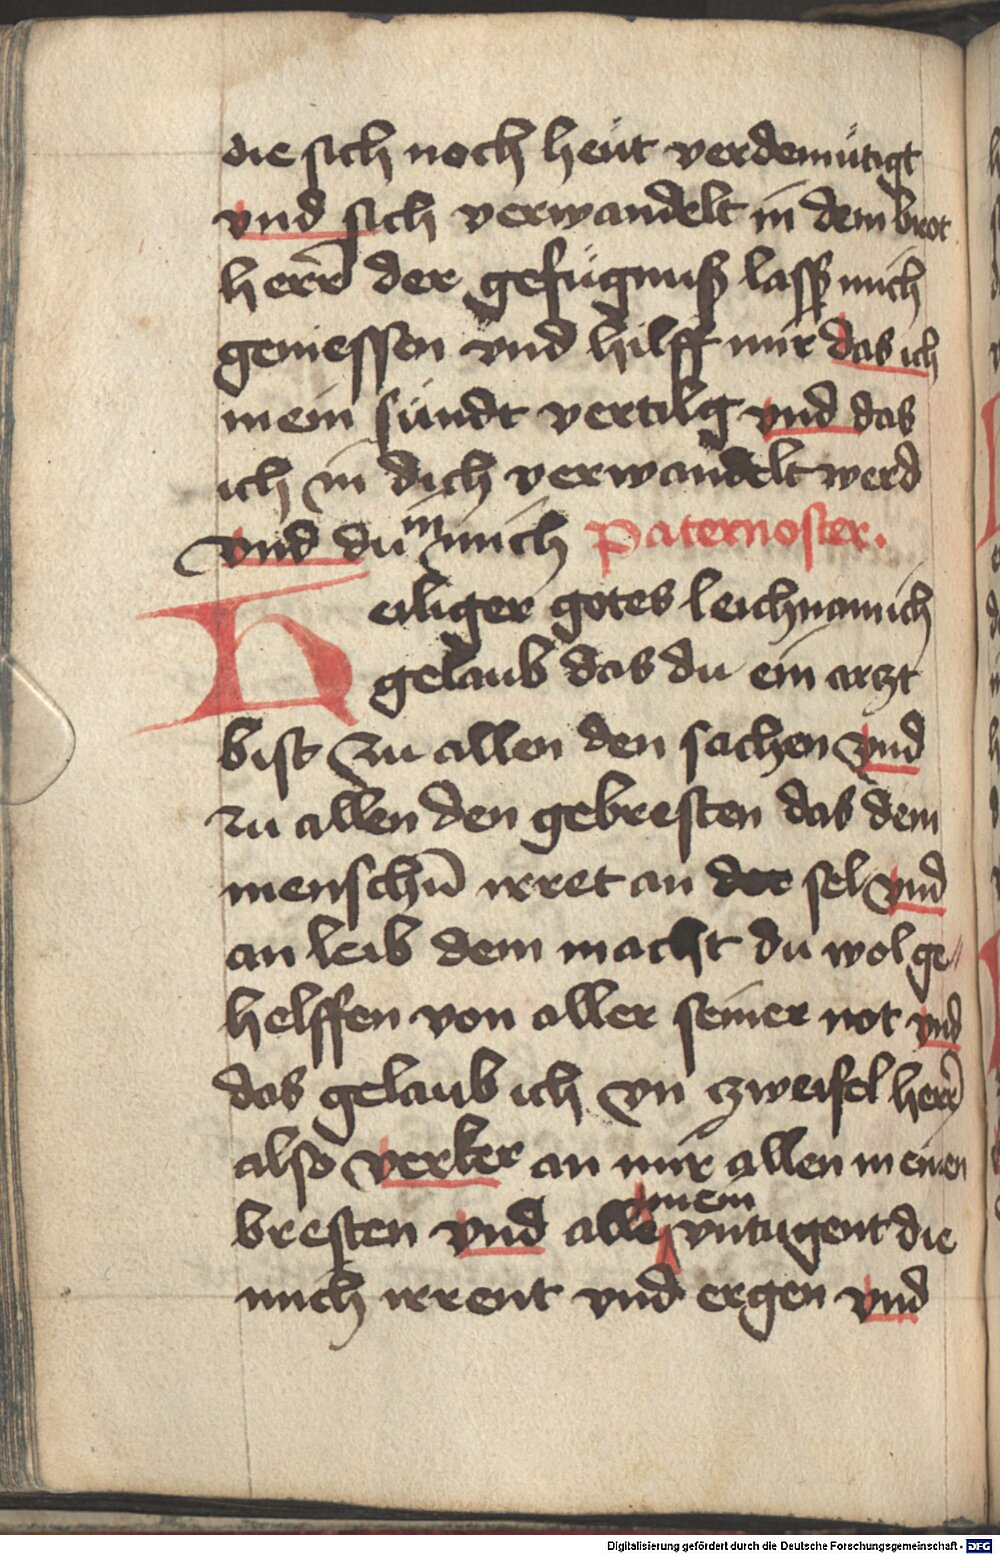 die sich noch heüt verdemütigt
vnd sich verwandelt in dem brot
herr̄ der gefügnuß lasß mich
geniessen vnd hilff mir das ich
mein sündt vertilg vnd das
ich in dich verwandelt werd
vnd du in mich Paternoster.
Heiliger gotes leichnam ich
gelaub das du ein arzt
bist zu allen den sachen vnd
zu allen den gebresten das dem
menschn̄ irret an der sel vnd
an leib dem macht du wol ge⸗
helffen von aller seiner not vnd
das gelaub ich vn zweifel herr̄
also verker an mir allen meinen
bresten vnd alle mein vntugent die
mich irrent vnd ergen vnd
Digitalisierung gefördert durch die Deutsche Forschungsgemeinschaft - DFG